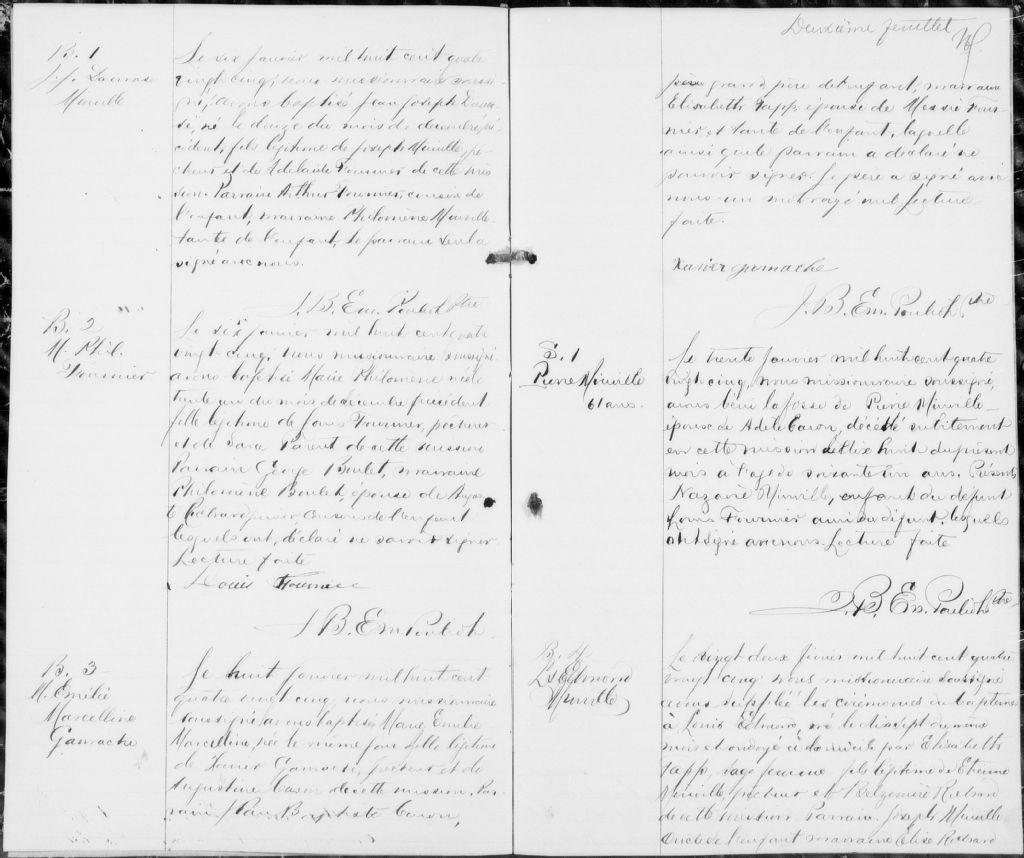 B. 1
J. J. Damase
Minville
Le six janvier mil huit cent quatre
vingt cinq, nous missionnaire soussi-
gné, avons baptisé Jean Joseph Dama-
se, né le douze du mois de décembre pré-
cédent, fils légitime de Joseph Minville, pê-
cheur et de Adelaide Fournier de cette mis
sion. Parrain Arthur Fournier, cousin de
l'enfant, marraine Philomène Minville
tante de l'enfant, le parrain seul a
signé avec nous.
J. B. Em. Pouliot Ptre
B. 2
M. Phil.
Fournier
Le six janvier mil huit cent quatre
vingt cinq, nous missionnaire soussigné
avons baptisé Marie Philomène née le
trente un du mois de décembre précédent
fille légitime de Louis Fournier, pêcheur
et de Sara Parent de cette mission
Parrain George Boulet, marraine
Philomène Boulet, épouse de Augus
te Richard junior cousin de l'enfant
lesquels ont déclaré ne savoir signer
Lecture faite
Louis Fournier
J. B. Em Pouliot
B. 3
M. Emilie
Marcelline
Gamache
Le huit janvier mil huit cent
quatre vingt cinq, nous missionnaire
soussigné avons baptisé Marie Emilie
Marcelline, née le même jour fille légitime
de Xavier Gamache, pêcheur et de
Augustine Caron de cette mission. Par
rain Jean Baptiste Caron,
Deuxième feuillet
père grand père de l'enfant, marraine
Elisabeth Tapp, épouse de Messie Four
nier et tante de l'enfant, laquelle
ainsi que le parrain a déclaré ne
pouvoir signer. Le père a signé avec
nous un mot rayé nul Lecture
faite.
Xavier gamache
J. B. Em. Pouliot Ptre
S. 1
Pierre Minville
61 ans.
Le trente janvier mil huit cent quatre
vingt cinq, nous missionnaire soussigné,
avons béni la fosse de Pierre Minville
époux de Adele Caron, décédé subitement
en cette mission le dix huit du présent
mois à l'age de soixante un ans. Présents
Nazaire Minville, enfant du défunt
Louis Fournier ami du défunt, lesquels
ont signé avec nous. Lecture faite
J. B. Em. Pouliot Ptre
B. 4
Ls Edmond
Minville
Le vingt deux février mil huit cent quatre
vingt cinq nous missionnaire soussigné
avons suppléé les cérémonies du baptême
à Louis Edmond, né le dixsept du même
mois et ondoyé à domicile par Elisabeth
Tapp, sage femme fils légitime de Etienne
Minville, pêcheur et Belzemire Richard
de cette mission Parrain Joseph Minville
oncle de l'enfant marraine Elise Richard